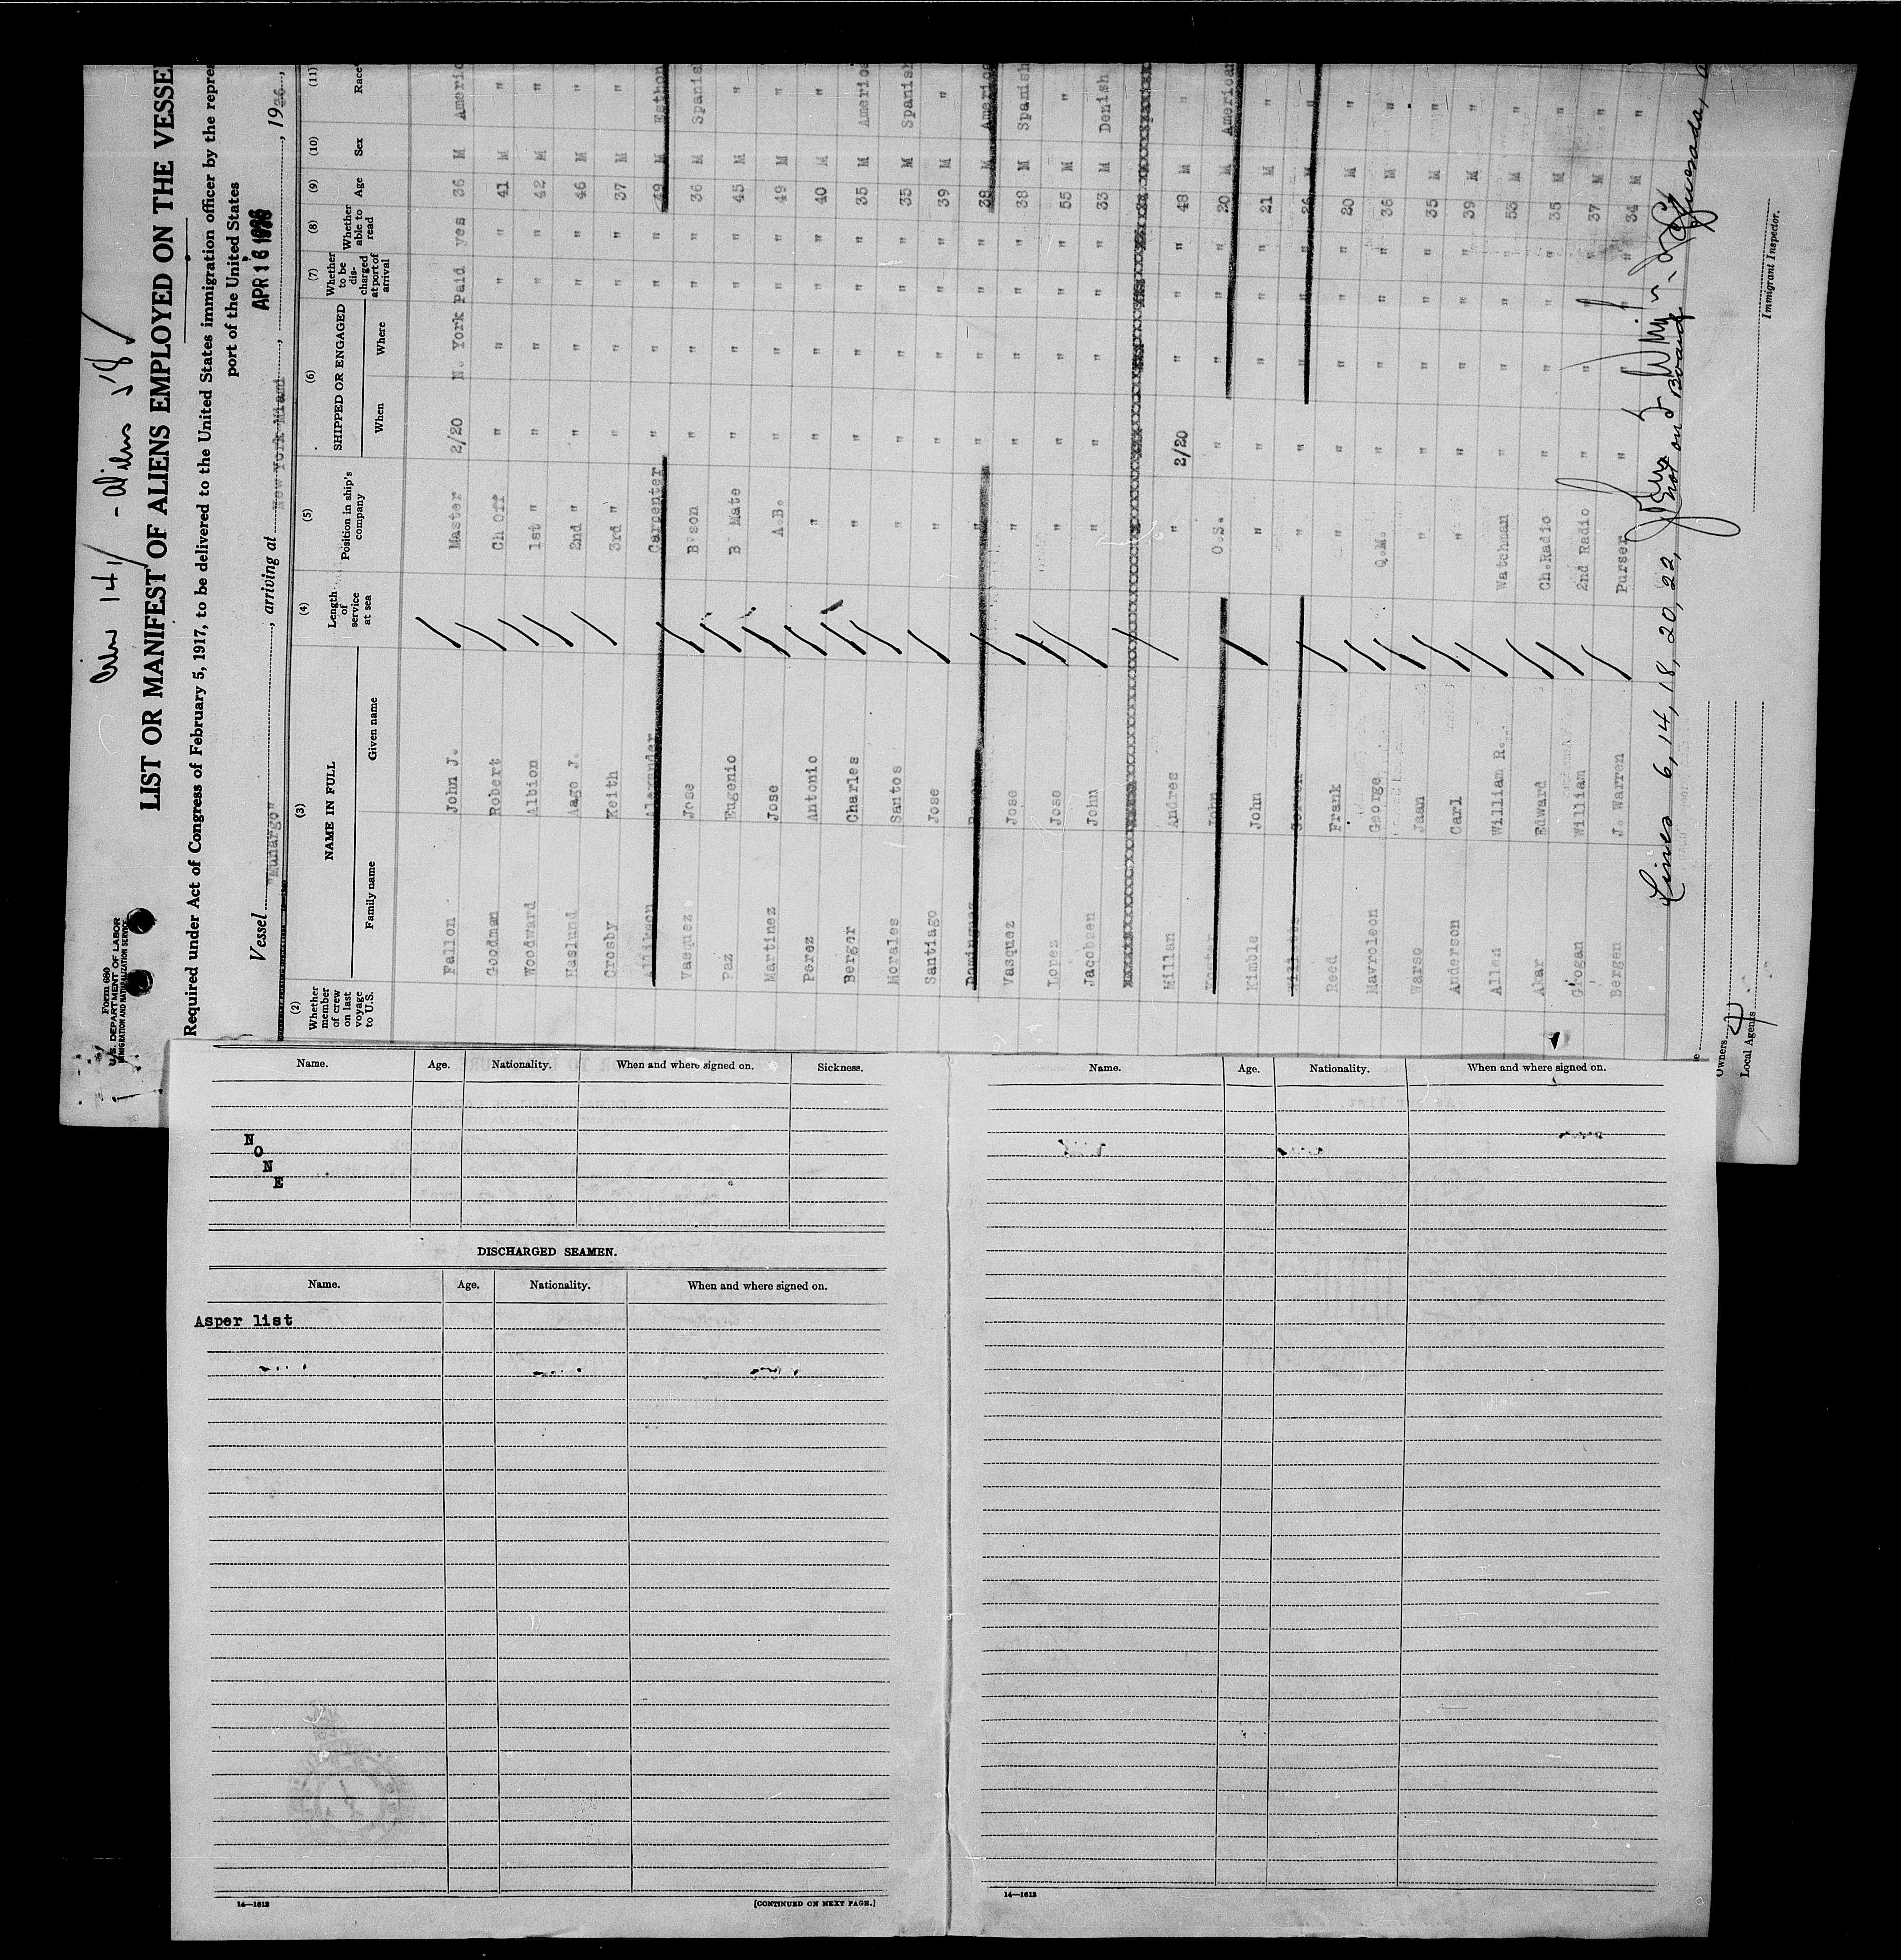 Crew 141 - Aliens 58 ✓
Form 680
U.S. DEPARTMENT OF LABOR
IMMIGRATION AND NATURALIZATION SERVICE
LIST OR MANIFEST OF ALIENS EMPLOYED ON THE VESSE
Required under Act of Congress of February 5, 1917, to be delivered to the United States immigration officer by the repres
port of the United States
APR 16 1936
Vessel "Munargo", arriving at New York Miami, , 1936,
(2) (3) (4) (5) (6) (7) (8) (9) (10) (11)
Whether member of crew on last voyage to U.S. NAME IN FULL Length of service at sea Position in ship's company SHIPPED OR ENGAGED Whether to be discharged at port of arrival Whether able to read Age Sex Race*
Family name Given name When Where
Fallon John J. Master 2/20 N. York Paid yes 36 M Americ
Goodman Robert Ch Off " " " " 41 M "
Woodward Albion 1st " " " " " 42 M "
Haslund Aage J. 2nd " " " " " 46 M "
Crosby Keith 3rd " " " " " 37 M "
Alexander Carpenter " " " " 49 M Esthon
Vasquez Jose B'son " " " " 36 M Spanis
Paz Eugenio B Mate " " " " 45 M "
Martinez Jose A.B. " " " " 49 M "
Perez Antonio " " " " " 40 M "
Berger Charles " " " " " 35 M America
Morales Santos " " " " " 35 M Spanish
Santiago Jose " " " " " 39 M "
Dominguez " " " " " 38 M America
Vasquez Jose " " " " " 38 M Spanish
Lopez Jose " " " " " 55 M "
Jacobsen John " " " " " 33 M Denish
Millan Andres " 2/20 " " " 48 M "
John O.S. " " " " 20 M American
Kimble John " " " " " 21 M "
" " " " " 26 M "
Reed Frank " " " " " 20 M "
Mavroleon George Q.M. " " " " 36 M "
Warso Jaan " " " " " 35 M "
Anderson Carl " " " " " 39 M "
Allen Willian R. Watchman " " " " 53 M "
Akar Edward Ch.Radio " " " " 35 M "
Grogan Willian 2nd Radio " " " " 37 M "
Bergen J. Warren Purser " " " " 34 M "
Lines 6, 14, 18, 20, 22,
not on Board
Owners
Local Agents
Immigrant Inspector.
Name. Age. Nationality. When and where signed on. Sickness.
N
O
N
E
DISCHARGED SEAMEN.
Name. Age. Nationality. When and where signed on.
Asper list
14—1613 [CONTINUED ON NEXT PAGE.]
Name. Age. Nationality. When and where signed on.
14—1613